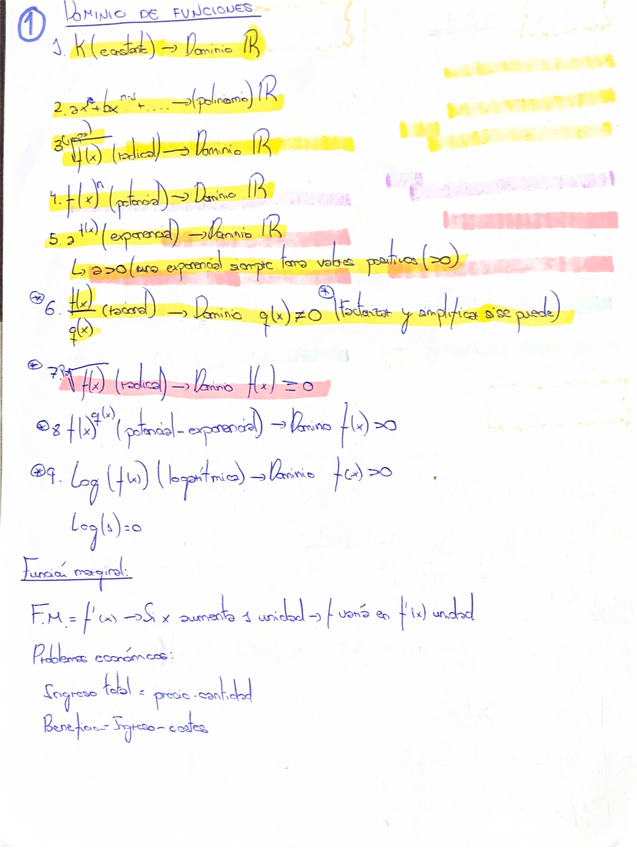 1 DOMINIO DE FUNCIONES
1. K (constante) → Dominio ℝ
2. ax^n + bx^n-1 + .... → (polinomio) ℝ
3. √f(x) (radical) → Dominio ℝ
4. f(x)^n (potencial) → Dominio ℝ
5. a^f(x) (exponencial) → Dominio ℝ
↳ a>0 (una exponencial siempre toma valores positivos (>0)
* 6. f(x)/q(x) (racional) → Dominio q(x) ≠ 0 * (Factorizar y simplificar si se puede)
* 7. √f(x) (radical) → Dominio f(x) ≥ 0
* 8 f(x)^g(x) (potencial-exponencial) → Dominio f(x) > 0
* 9. Log (f(x)) (logarítmica) → Dominio f(x) > 0
Log(1) = 0
Función marginal:
F.M. = f'(x) → Si x aumenta 1 unidad → f varía en f'(x) unidad
Problemas económicos:
Ingreso total = precio · cantidad
Beneficio = Ingreso - costes